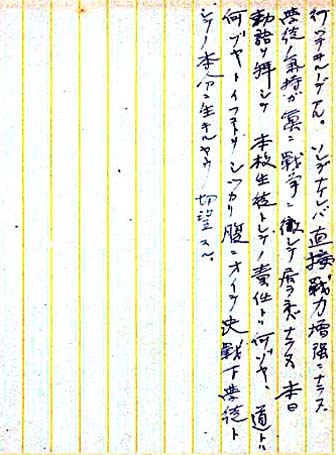 行ツテヰルノデアル。ソレデナケレバ直接戦力増強ニナラヌ
学徒ノ氣持ガ真ニ戦争ニ徹シテ居ラネバナラヌ 本日
勅語ヲ拝シテ 本校生徒トシテノ責任トハ何ゾヤ、道トハ
何ゾヤトイフコトヲ シツカリ腹ニオイテ 決戦下学徒ト
シテノ本分ニ生キルヤウ 切望スル。